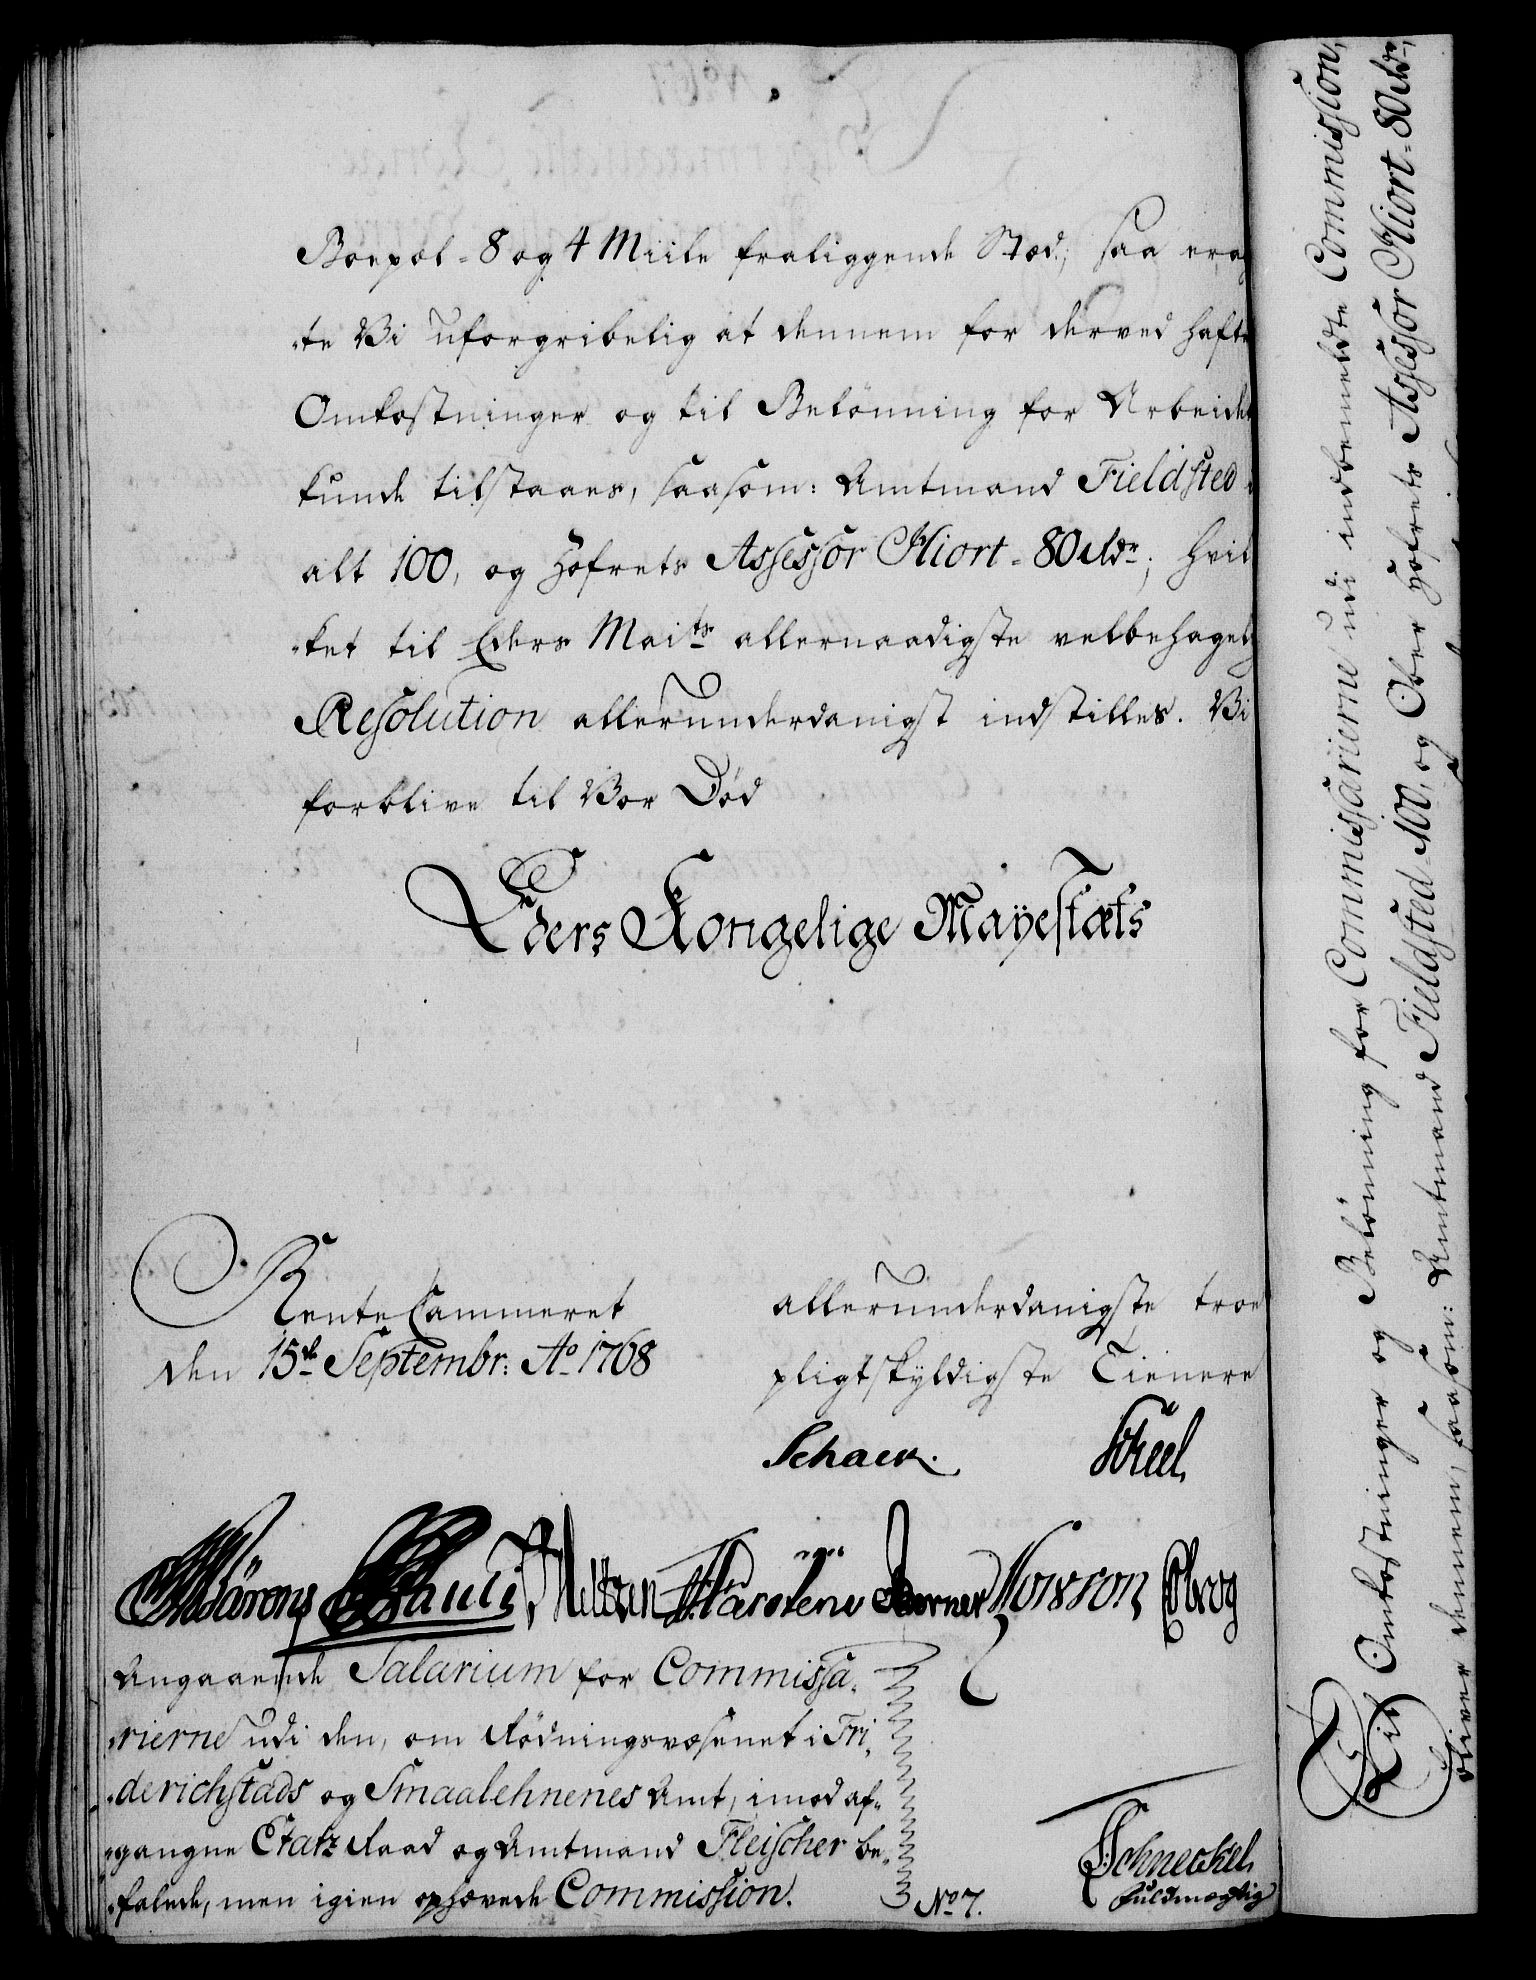 Boepæl 8 og 4 Miile fraliggende Stæd; saa erag
-te Vi uforgribelig at dennem for derved hafte
Omkostninger og til Belönning for Arbeidet
kunde tilstaaes, saasom: Amtmand Fieldsted
alt 100, og Hofrets Assessor Hiort - 80 rdr; hvil
-ket til Eders Maits allernaadigste velbehagel:
Resolution allerunderdanigst indstilles. Vi
forblive til Vor Död
Eders Kongelige Mayestæts
RenteCammeret
den 15de Septembr: Ao 1768
allerunderdanigste troe
pligtskyldigste Tienere
Schack. Scheel
Wärens Pauli Meltzen Karstens Borner Morsson Obrog
Angaaende Salarium for Commissa-
-rierne udi den, om Rödningsvæsenet i Fri-
-derichstads og Smaalehnenes Amt, imod af-
-gangne Etatz Raad og Amtmand Fleischer be-
-falede, men igien ophævede Commission.
No 7.
Schneckel
Fuldmægtig
Til Omkostninger og Belönning for Commissarierne udi indbemeldte Commission,
bliver dennem, saasom: Amtmand Fieldsted 100, og Ober Hofrets Assessor Hiort - 80 rdr,